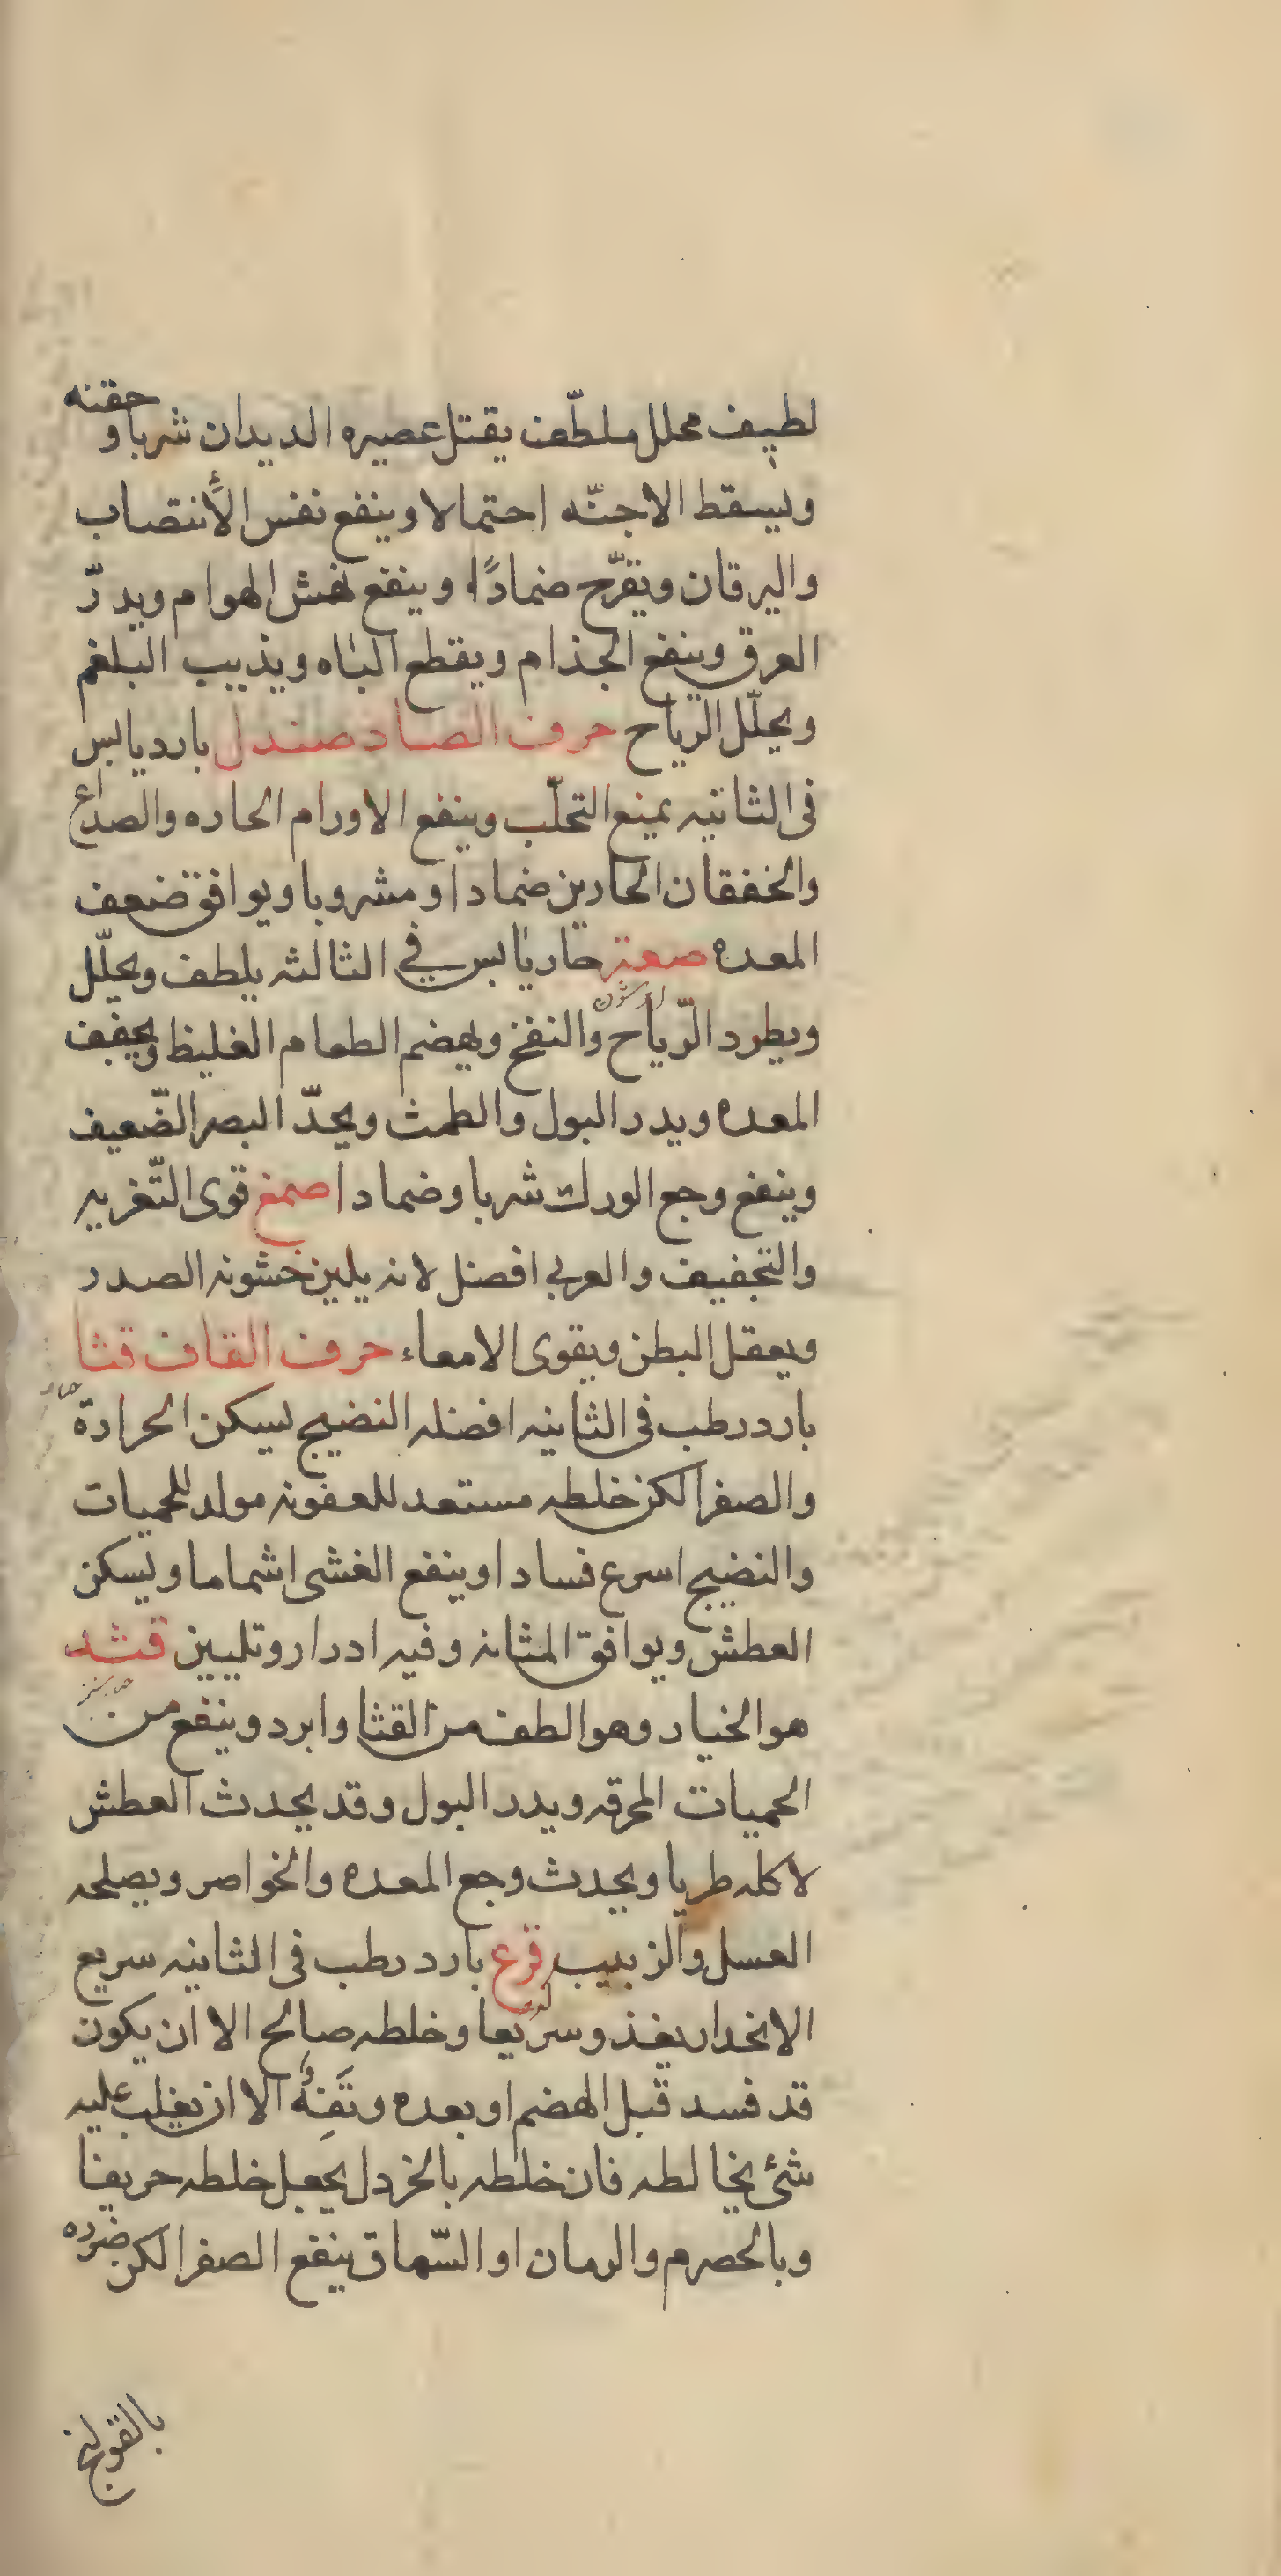 لطيف محلل ملطّف يقتل عصيره الديدان شربا و حقنه
ويسقط الاجنّه احتمالا وينفع نفس الأنتصاب
واليرقان ويقرّح ضمادًا وينفع نهش الهوام ويدرّ
العرق وينفع الجذام ويقطع الباه ويذيب البلغم
ويحلّل الرياح حرف الصاد صندل بارد يابس
فى الثانيه يمنع التحلّب وينفع الاورام الحاره والصداع
والخفقان الحارين ضمادا ومشروبا ويوافق ضعف
المعده صعتر حار يابس في الثالثه يلطف ويحلّل
ويطرد الرّياح والنفخ ويهضم الطعام الغليظ ويجفف
المعده ويدر البول والطمث ويحدّ البصر الضّعيف
وينفع وجع الورك شربا وضمادا صمغ قوى التّغريه
والتجفيف والعربى افضل لانه يلين خشونه الصدر
ويعقل البطن ويقوى الامعاء حرف القاف قثا
بارد رطب فى الثانيه افضله النضيج يسكن الحرارة
والصفرا لكن خلطه مستعد للعفونه مولد للحميات
والنضيج اسرع فسادا وينفع الغشى اشماما ويسكن
العطش ويوافق المثانه وفيه ادرار وتليين قثد
هو الخيار وهو الطف من القثا وابرد وينفع من
الحميات المحرقه ويدر البول وقد يحدث العطش
لاكله طريا ويحدث وجع المعده والخواصر ويصلحه
العسل والزبيب قرع بارد رطب فى الثانيه سريع
الانحدار يغذو سريعا وخلطه صالح الا ان يكون
قد فسد قبل الهضم او بعده وتَفِهُ الا ان يغلب عليه
شئ يخالطه فان خلطه بالخردل يجعل خلطه حريفا
وبالحصرم والرمان او السّماق ينفع الصفرا لكن ضرره
بالقولنج